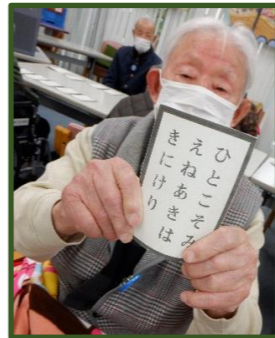 ひとこそみ
えねあきは
きにけり